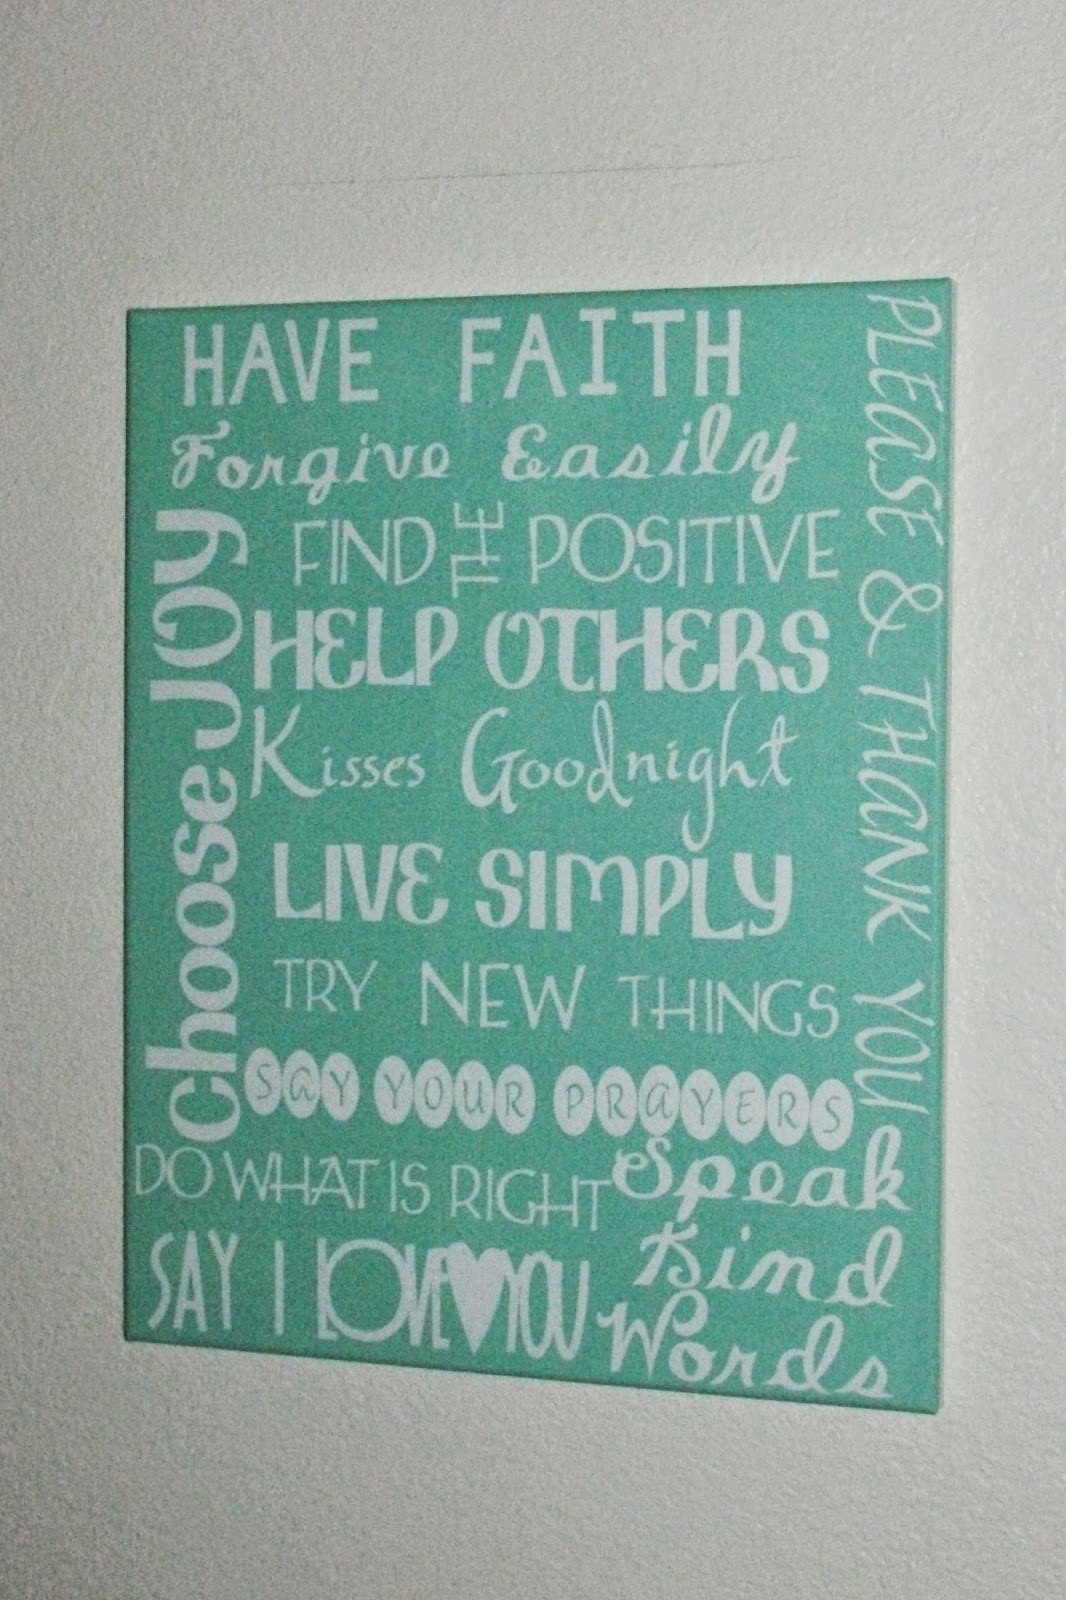 HAVE FAITH
Forgive Easily
FIND THE POSITIVE
HELP OTHERS
Kisses Goodnight
LIVE SIMPLY
TRY NEW THINGS
SAY YOUR PRAYERS
DO WHAT IS RIGHT
SAY I LOVE♥YOU
Speak
Kind
Words
choose JOy
PLEASE & THANK YOU